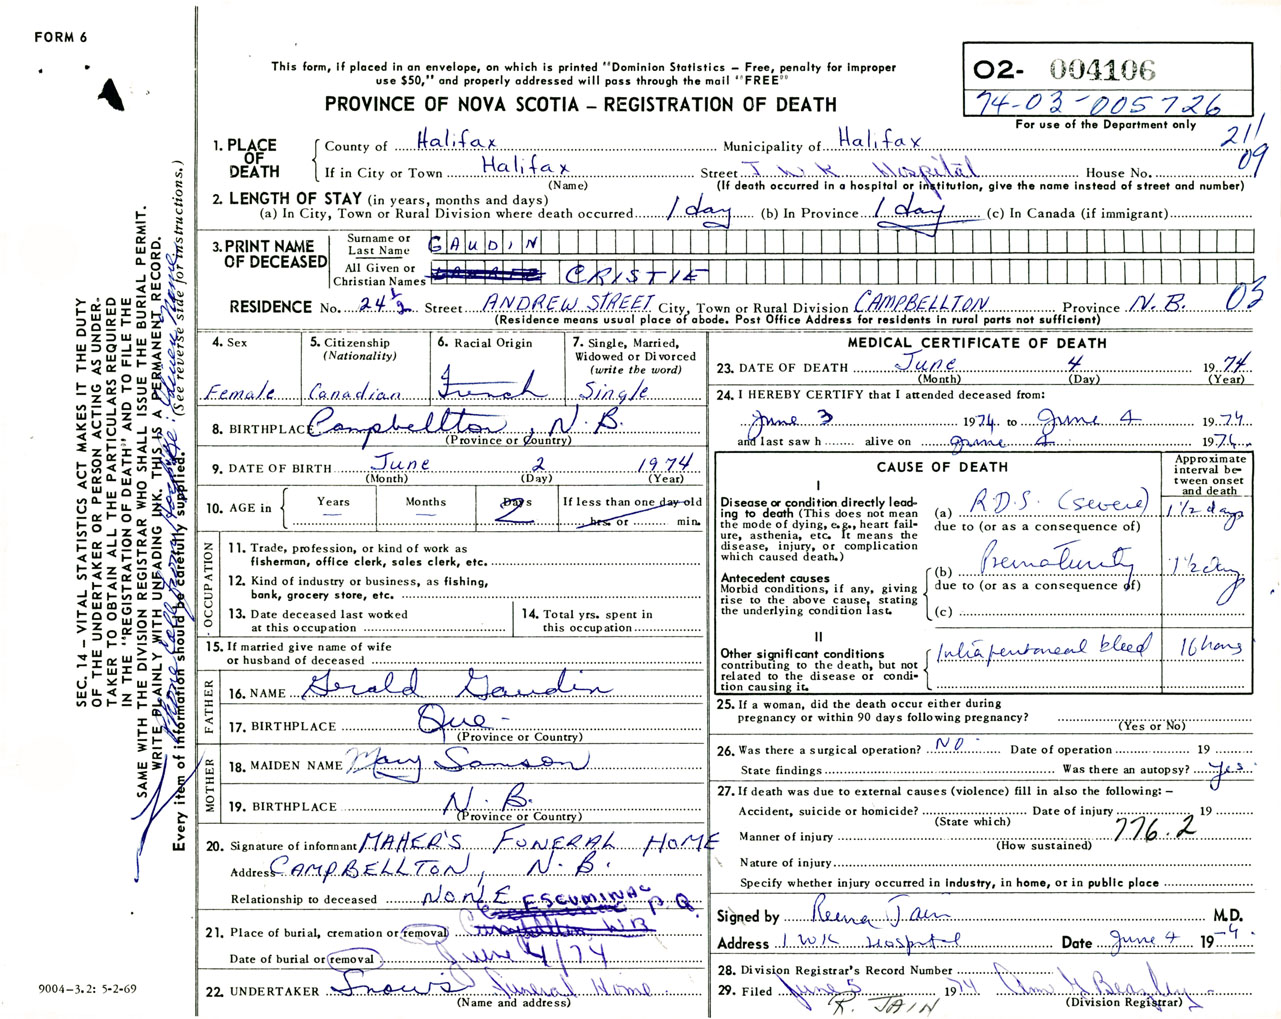 FORM 6
This form, if placed in an envelope, on which is printed "Dominion Statistics – Free, penalty for improper
use $50," and properly addressed will pass through the mail "FREE"
PROVINCE OF NOVA SCOTIA – REGISTRATION OF DEATH
O2- 004106
74-03-005726
For use of the Department only
21/
09
1. PLACE OF DEATH
County of Halifax Municipality of Halifax
If in City or Town Halifax Street I W K Hospital House No.
(Name) (If death occurred in a hospital or institution, give the name instead of street and number)
2. LENGTH OF STAY (in years, months and days)
(a) In City, Town or Rural Division where death occurred 1 day (b) In Province 1 day (c) In Canada (if immigrant)
3. PRINT NAME OF DECEASED
Surname or Last Name GAUDIN
All Given or Christian Names CRISTIE
RESIDENCE No. 24 1/2 Street ANDREW STREET City, Town or Rural Division CAMPBELLTON Province N.B. 03
(Residence means usual place of abode. Post Office Address for residents in rural parts not sufficient)
4. Sex
Female
5. Citizenship
(Nationality)
Canadian
6. Racial Origin
French
7. Single, Married,
Widowed or Divorced
(write the word)
Single
8. BIRTHPLACE Campbellton, N.B.
(Province or Country)
9. DATE OF BIRTH June 2 1974
(Month) (Day) (Year)
10. AGE in
Years —
Months —
Days 2
If less than one day old
hrs. or min.
OCCUPATION
11. Trade, profession, or kind of work as
fisherman, office clerk, sales clerk, etc.
12. Kind of industry or business, as fishing,
bank, grocery store, etc.
13. Date deceased last worked
at this occupation
14. Total yrs. spent in
this occupation
15. If married give name of wife
or husband of deceased
FATHER
16. NAME Gerald Gaudin
17. BIRTHPLACE Que -
(Province or Country)
MOTHER
18. MAIDEN NAME Mary Samson
19. BIRTHPLACE N.B.
(Province or Country)
20. Signature of informant MAHER'S FUNERAL HOME
Address CAMPBELLTON, N.B.
Relationship to deceased NONE
ESCUMINAC P.Q.
21. Place of burial, cremation or removal
Date of burial or removal June 4/74
22. UNDERTAKER Snow's Funeral Home
(Name and address)
MEDICAL CERTIFICATE OF DEATH
23. DATE OF DEATH June 4 1974
(Month) (Day) (Year)
24. I HEREBY CERTIFY that I attended deceased from:
June 3 1974 to June 4 1974
and last saw h alive on June 4 1974
CAUSE OF DEATH
Approximate
interval be-
tween onset
and death
I
Disease or condition directly lead-
ing to death (This does not mean
the mode of dying, e.g., heart fail-
ure, asthenia, etc. It means the
disease, injury, or complication
which caused death.)
(a) R.D.S. (severe) 1 1/2 days
due to (or as a consequence of)
Antecedent causes
Morbid conditions, if any, giving
rise to the above cause, stating
the underlying condition last.
(b) Prematurity 1 1/2 day
due to (or as a consequence of)
(c)
II
Other significant conditions
contributing to the death, but not
related to the disease or condi-
tion causing it.
Intraperitoneal bleed 16 hours
25. If a woman, did the death occur either during
pregnancy or within 90 days following pregnancy?
(Yes or No)
26. Was there a surgical operation? NO Date of operation 19
State findings Was there an autopsy? Yes
27. If death was due to external causes (violence) fill in also the following: –
Accident, suicide or homicide? Date of injury 19
(State which)
776.2
Manner of injury
(How sustained)
Nature of injury
Specify whether injury occurred in industry, in home, or in public place
Signed by Reena Jain M.D.
Address I W K Hospital Date June 4 19
28. Division Registrar's Record Number
29. Filed June 5 1974
(Division Registrar)
R. JAIN
SEC. 14 – VITAL STATISTICS ACT MAKES IT THE DUTY
OF THE UNDERTAKER OR PERSON ACTING AS UNDER-
TAKER TO OBTAIN ALL THE PARTICULARS REQUIRED
IN THE "REGISTRATION OF DEATH" AND TO FILE THE
SAME WITH THE DIVISION REGISTRAR WHO SHALL ISSUE THE BURIAL PERMIT.
WRITE PLAINLY WITH UNFADING INK. THIS IS A PERMANENT RECORD.
Every item of information should be carefully supplied. (See reverse side for instructions.)
9004-3.2: 5-2-69